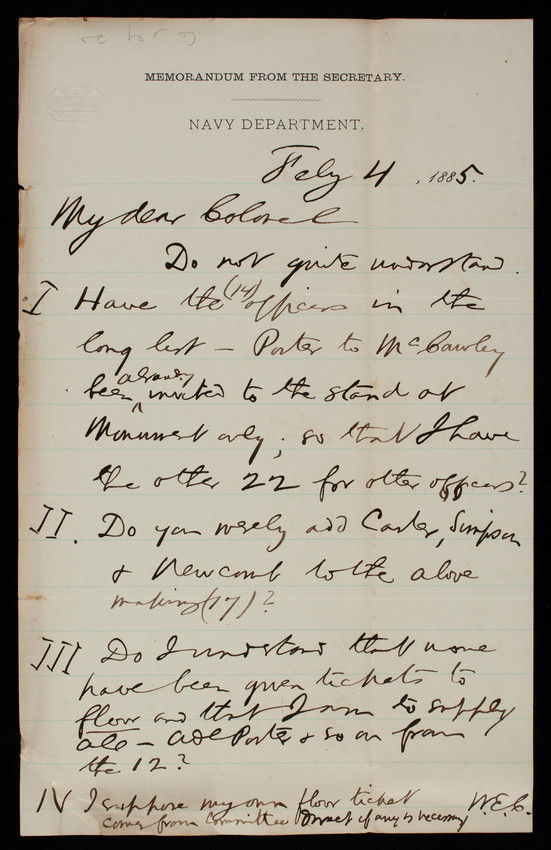 MEMORANDUM FROM THE SECRETARY.
NAVY DEPARTMENT.
Feby 4, 1885.
My dear Colonel
Do not quite understand.
I Have the (14) officers in the
long list — Porter to McCawley
been already invited to the stand at
Monument only; so that I have
the other 22 for other officers?
II. Do you merely add Carter, Simpson
& Newcomb to the above
making (17)?
III Do I understand that none
have been given tickets to
floor and that I am to supply
all — add Porter & so on from
the 12?
IV I suppose my own floor ticket
comes from Committee direct if any is necessary
W.E.C.